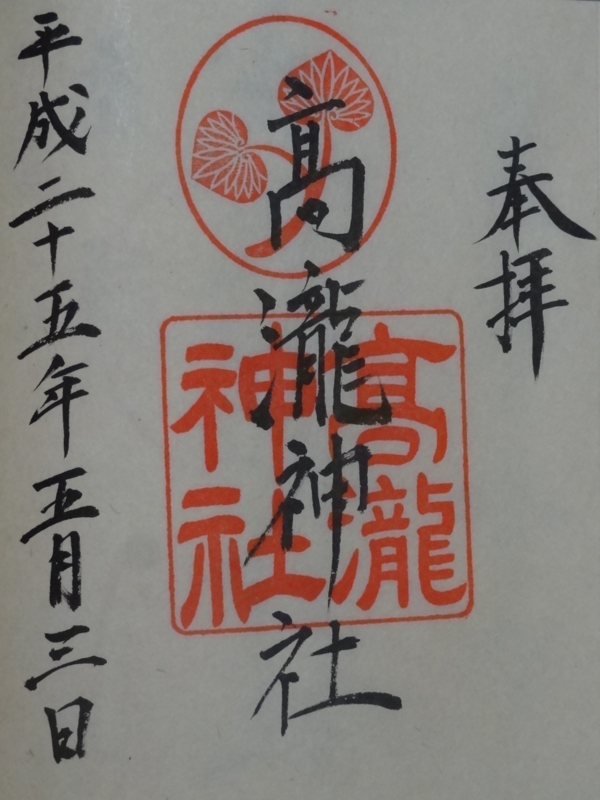 奉拝
高瀧神社
高瀧
神社
平成二十五年五月三日